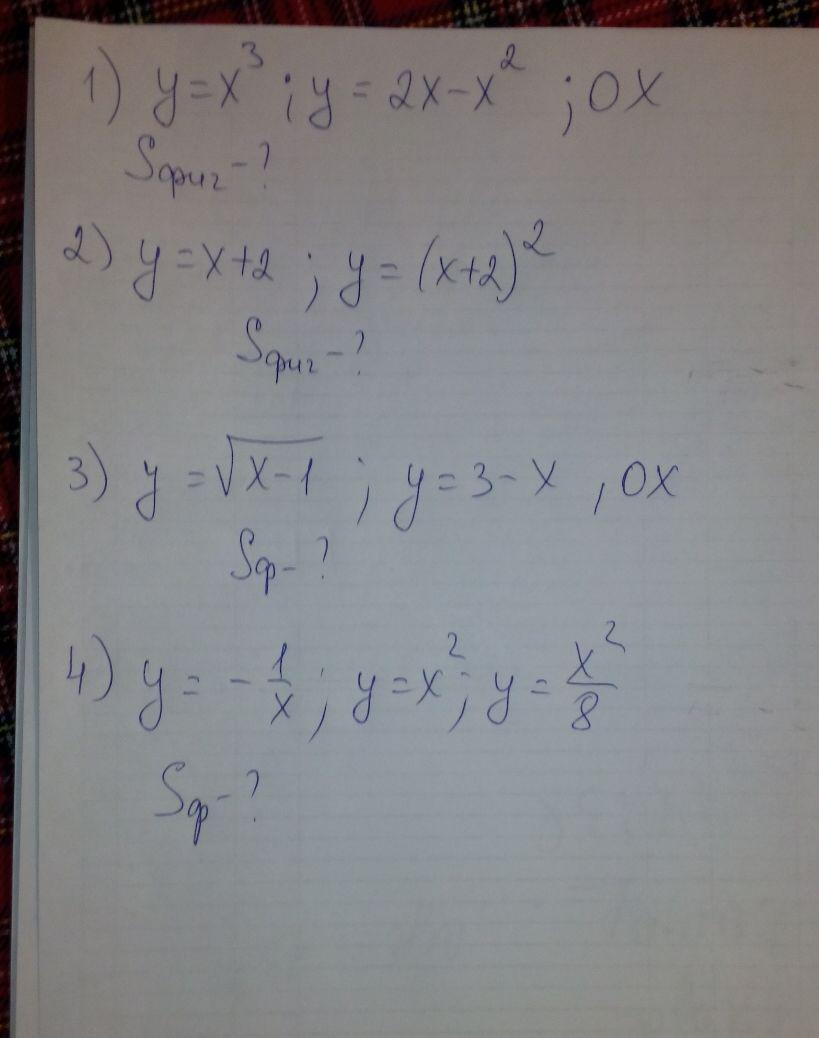 1) y = x³ ; y = 2x - x² ; OX
Sфиг - ?
2) y = x+2 ; y = (x+2)²
Sфиг - ?
3) y = √(x-1) ; y = 3 - x , OX
Sф - ?
4) y = - 1/x ; y = x² ; y = x²/8
Sф - ?